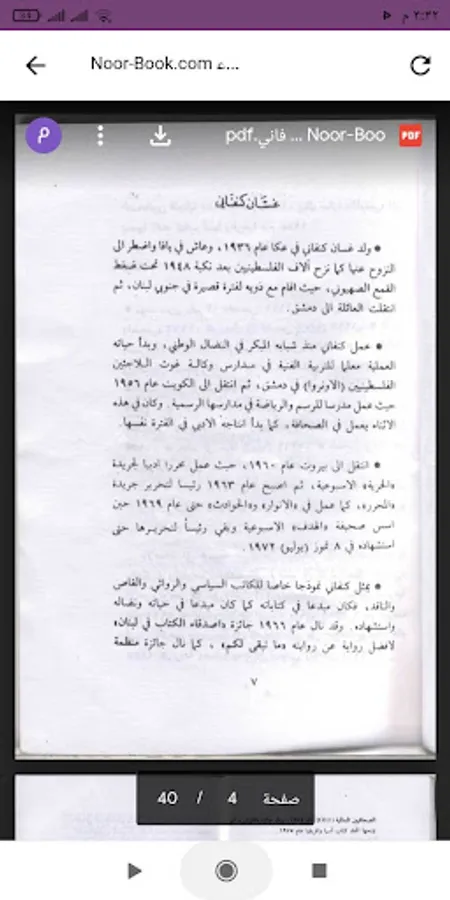 ٢:٢٢ م
Noor-Book.com ے...
pdf.فاني ... Noor-Boo
PDF
م
غسّان كنفاني
● ولد غسان كنفاني في عكا عام ١٩٣٦، وعاش في يافا واضطر الى
النزوح عنها كما نزح آلاف الفلسطينيين بعد نكبة ١٩٤٨ تحت ضغط
القمع الصهيوني، حيث اقام مع ذويه لفترة قصيرة في جنوبي لبنان، ثم
انتقلت العائلة الى دمشق.
● عمل كنفاني منذ شبابه المبكر في النضال الوطني، وبدأ حياته
العملية معلما للتربية الفنية في مدارس وكالة غوث اللاجئين
الفلسطينيين (الاونروا) في دمشق، ثم انتقل الى الكويت عام ١٩٥٦
حيث عمل مدرسا للرسم والرياضة في مدارسها الرسمية. وكان في هذه
الاثناء يعمل في الصحافة، كما بدأ انتاجه الادبي في الفترة نفسها.
● انتقل الى بيروت عام ١٩٦٠، حيث عمل محررا ادبيا لجريدة
«الحرية» الاسبوعية، ثم اصبح عام ١٩٦٣ رئيسا لتحرير جريدة
«المحرر»، كما عمل في «الانوار» و«الحوادث» حتى عام ١٩٦٩ حين
اسس صحيفة «الهدف» الاسبوعية وبقي رئيساً لتحريرها حتى
استشهاده في ٨ تموز (يوليو) ١٩٧٢.
● يمثل كنفاني نموذجا خاصا للكاتب السياسي والروائي والقاص
والناقد، فكان مبدعا في كتاباته كما كان مبدعا في حياته ونضاله
واستشهاده. وقد نال عام ١٩٦٦ جائزة «اصدقاء الكتاب في لبنان»
لافضل رواية عن روايته «ما تبقى لكم»، كما نال جائزة منظمة
٧
صفحة 4 / 40